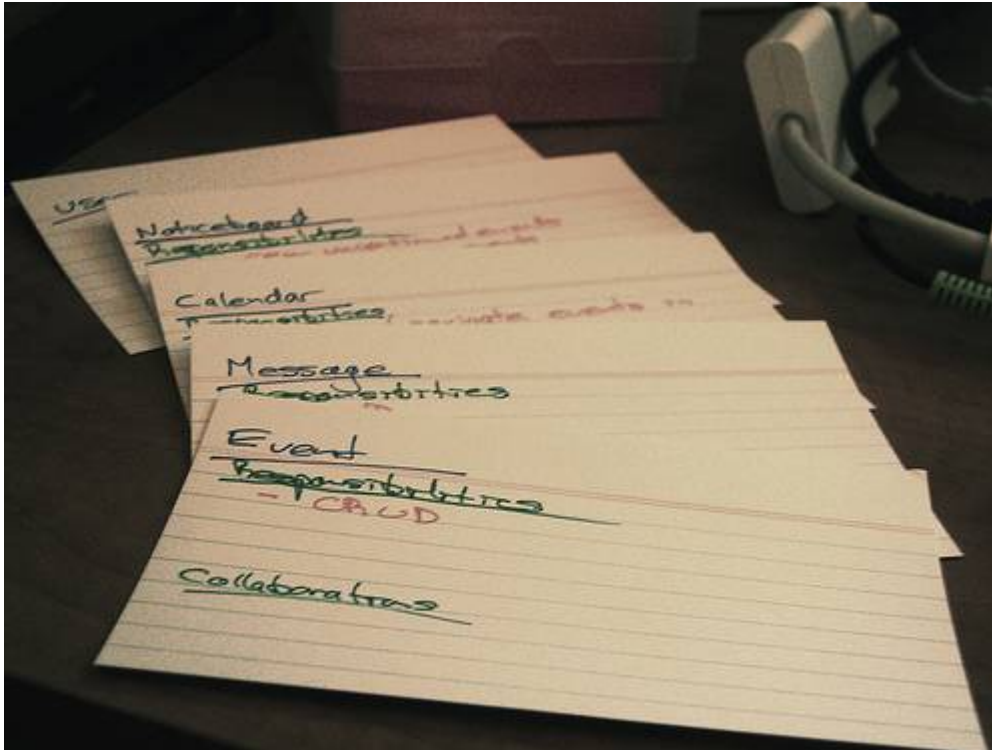 User
Noticeboard
Responsibilities
events
Calendar
Responsibilities
events
Message
Responsibilities
Event
Responsibilities
- CRUD
Collaborations